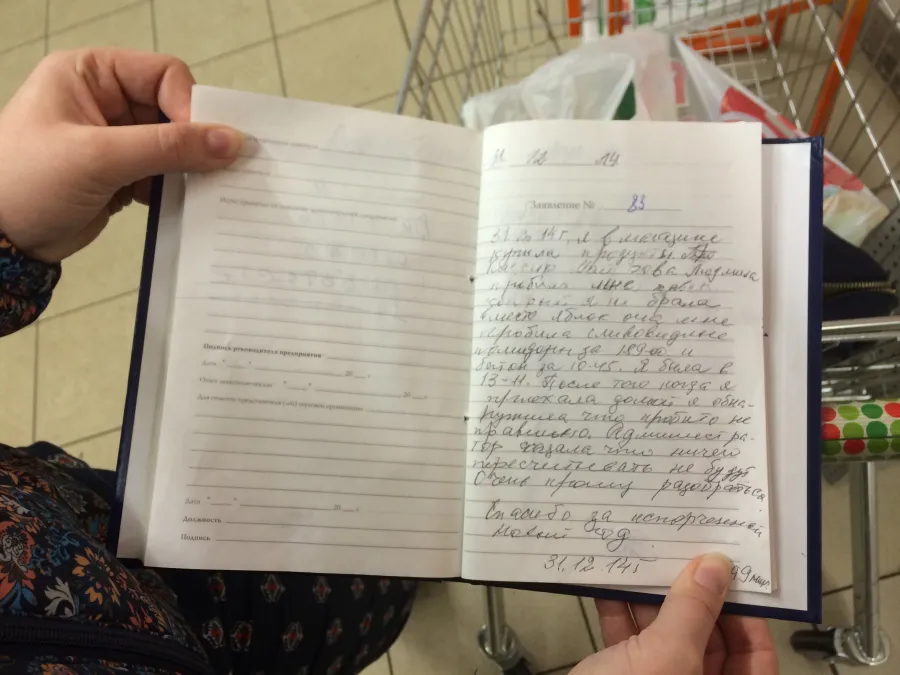 Меры, принятые по заявлению
Подпись руководителя предприятия
Дата " " 20 г.
Ответ
Для отметок
Дата " " 20 г.
Должность
Подпись
31 12 14
Заявление № 83
31 12 14г. я в магазине
купила продукты.
кассир Людмила
пробила мне
я не брала
вместо яблок она мне
пробила сливовидные
помидоры за 189-00 и
батон за 10-45. Я была в
13-11. После того когда я
приехала домой я обна-
ружила что пробито не
правильно. Администра-
тор сказала что ничего
пересчитывать не будут
Очень прошу разобраться.
Спасибо за испорченный
Новый год.
31.12.14г